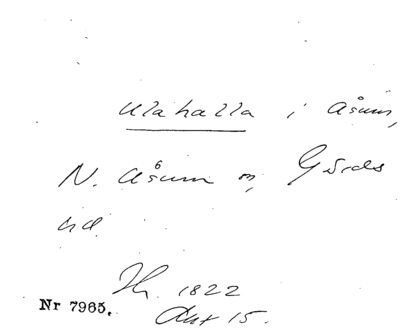 Ulahalla i Åsum,
N. Åsum sn, Gärds
hd.
1822
Akt 15.
Nr 7965.